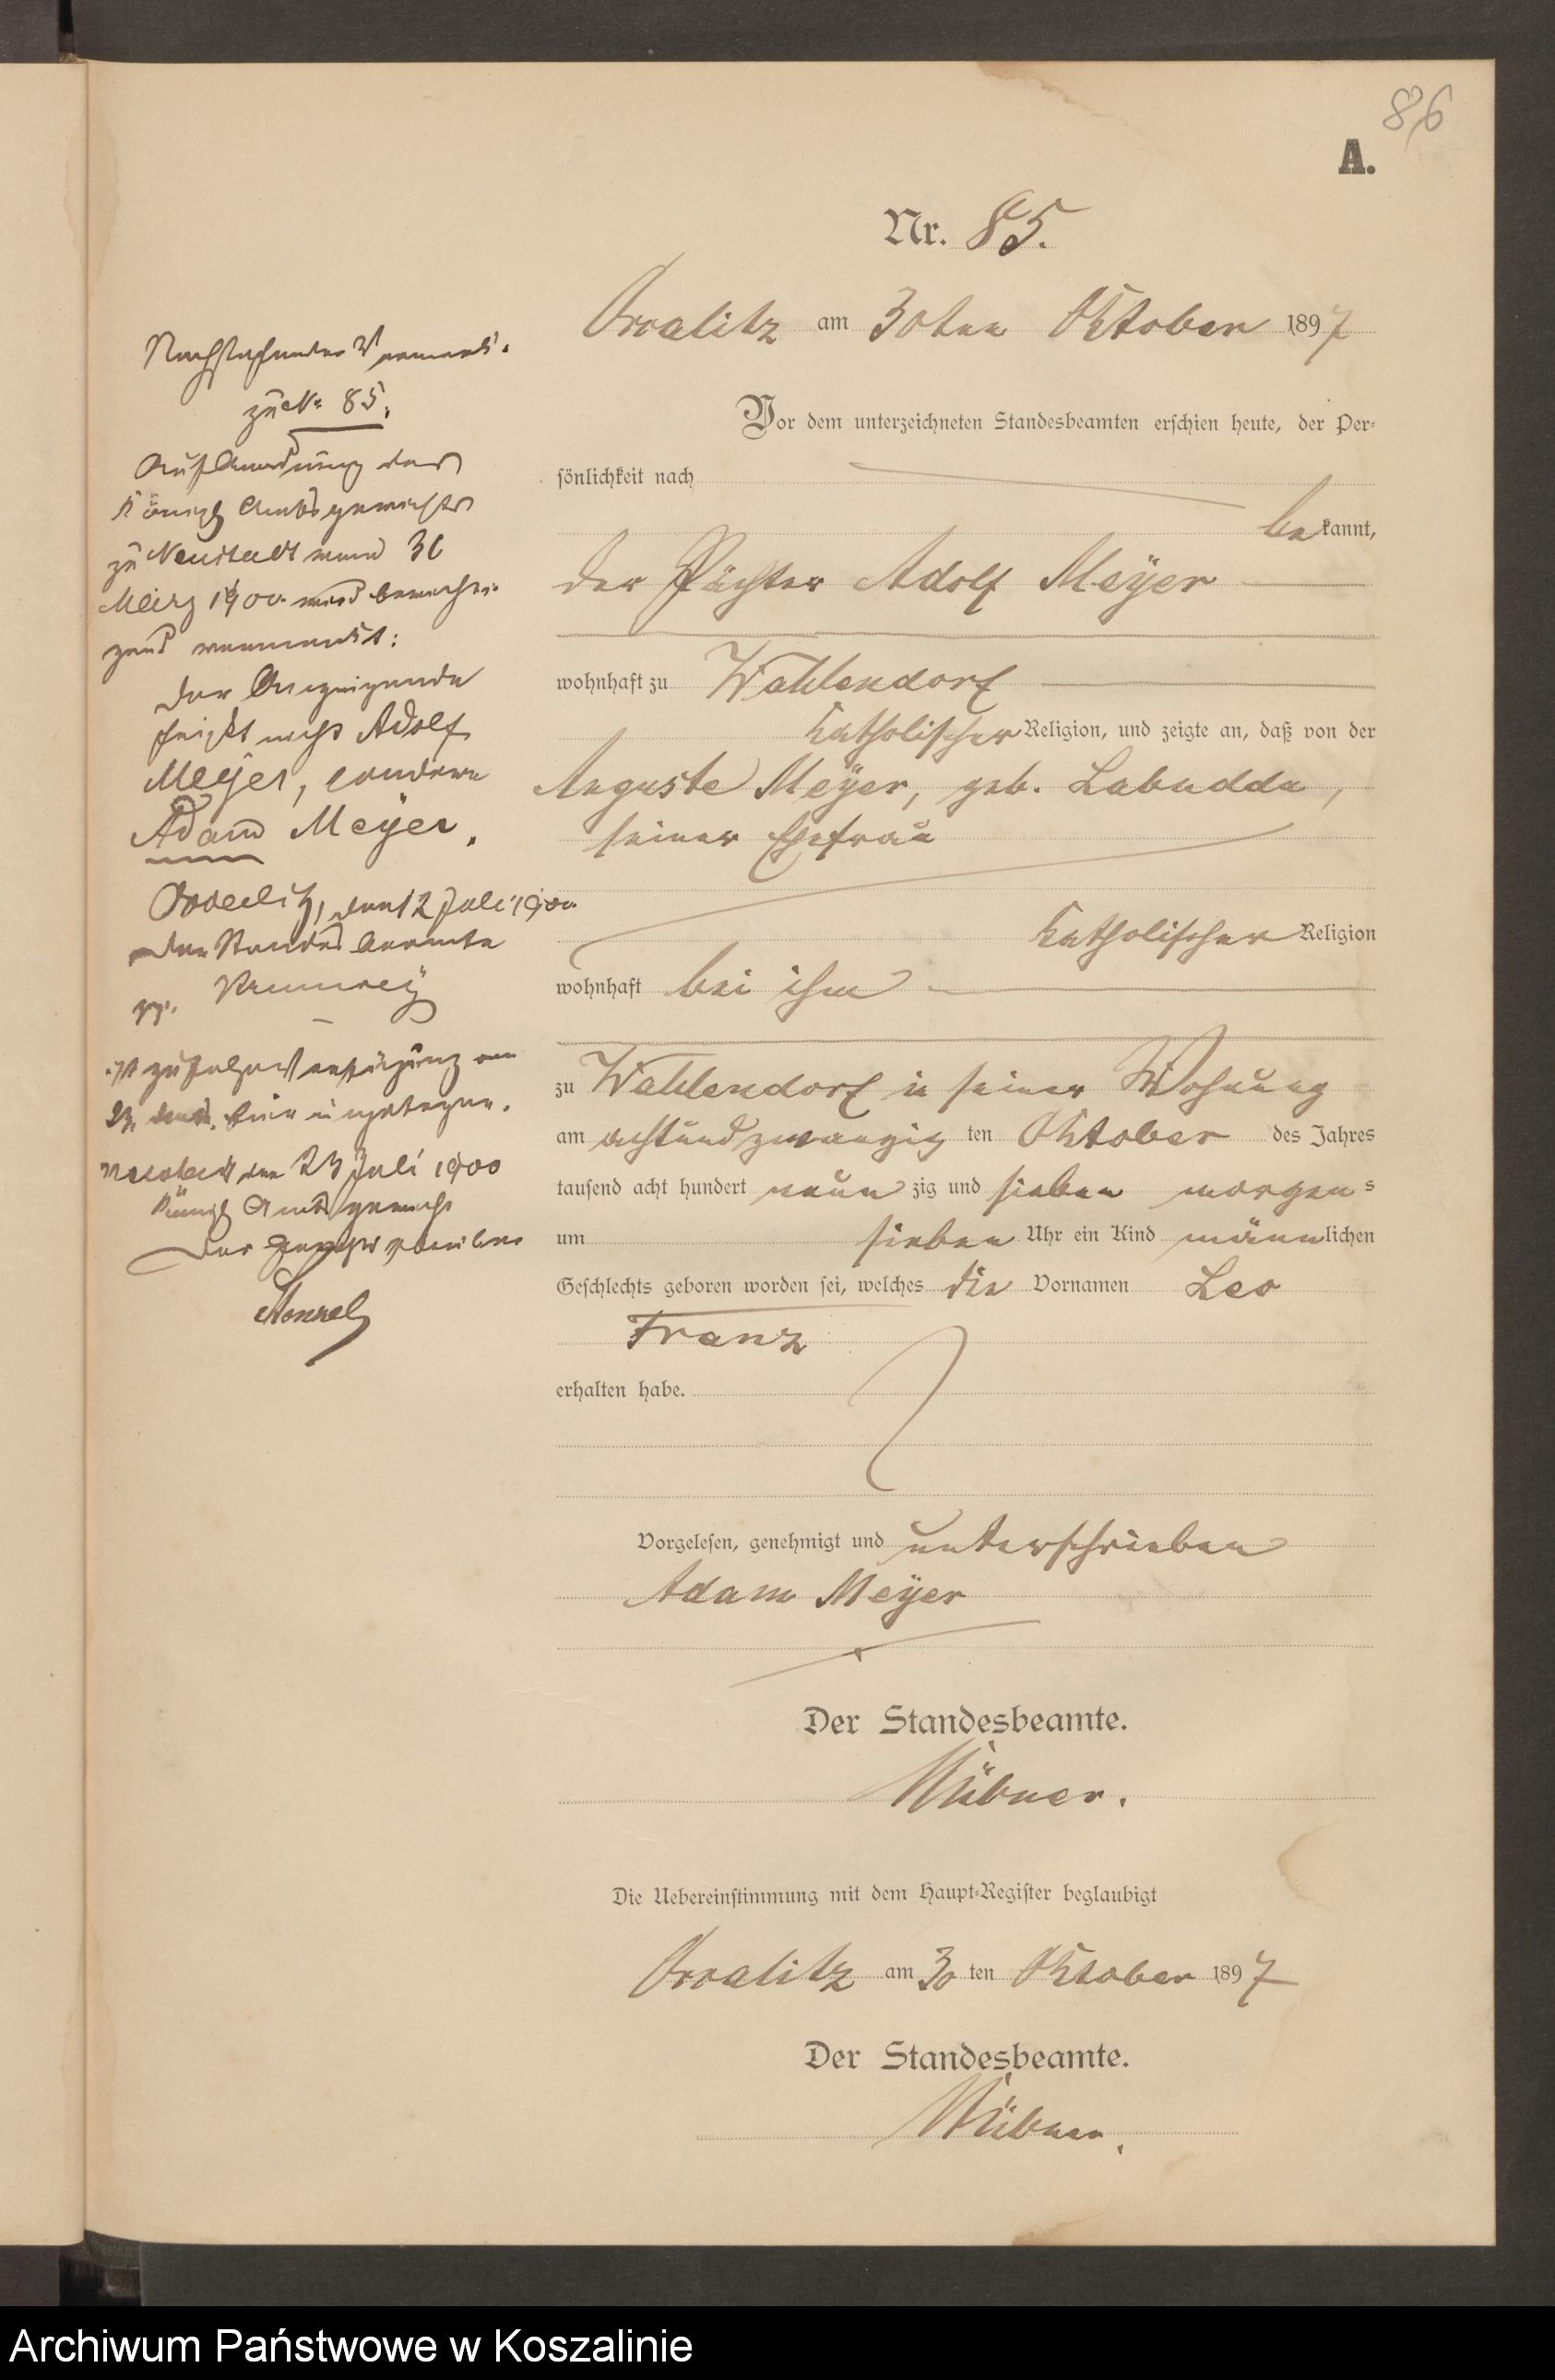 86
A.
Nr. 85.
Occalitz am 30ten Oktober 1897
Vor dem unterzeichneten Standesbeamten erschien heute, der Per-
sönlichkeit nach
bekannt,
der Pächter Adolf Meÿer
wohnhaft zu Wahlendorf
katholischer Religion, und zeigte an, daß von der
Auguste Meÿer, geb. Labudda,
seiner Ehefrau
katholischer Religion
wohnhaft bei ihm
zu Wahlendorf in seiner Wohnung
am achtundzwanzig ten Oktober des Jahres
tausend acht hundert neun zig und sieben morgens
um sieben Uhr ein Kind männlichen
Geschlechts geboren worden sei, welches die Vornamen Leo
Franz
erhalten habe.
Vorgelesen, genehmigt und unterschrieben
Adam Meÿer
Der Standesbeamte.
Die Uebereinstimmung mit dem Haupt-Register beglaubigt
Occalitz am 30 ten Oktober 1897
Der Standesbeamte.
Nachstehender Vermerk
zu No 85.
Auf Anordnung des
Königl Amtsgerichts
zu Neustadt vom
März 1900 wird berichti-
gend vermerkt:
Der Anzeigende
heißt nicht Adolf
Meÿer, sondern
Adam Meÿer.
Occalitz, den 12 Juli 1900
Der Standesbeamte
gez.
ist zufolge Verfügung vom
hier eingetragen.
Neustadt den 23 Juli 1900
Königl Amtsgericht
Der Gerichtsschreiber
Archiwum Państwowe w Koszalinie